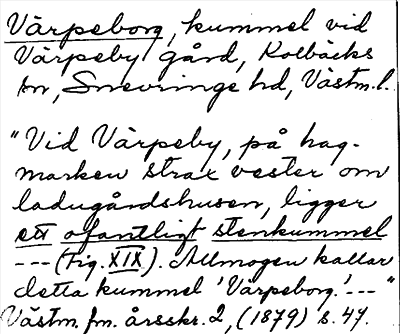 Värpeborg, kummel vid
Värpeby gård, Kolbäcks
sn, Snevringe hd, Västm.l.
"Vid Värpeby, på hag-
marken strax vester om
ladugårdshusen, ligger
ett ofantligt stenkummel
--- (Fig. XIX). Allmogen kallar
detta kummel 'Värpeborg.' --- "
Västm. fm. årsskr. 2, (1879) s. 47.